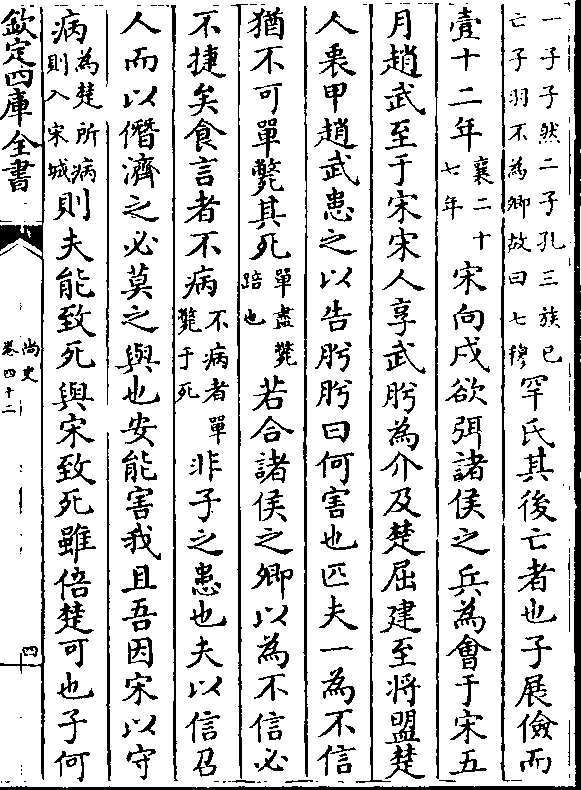 一子子然二子孔三族已
亡子羽不為卿故曰七穆
罕氏其後亡者也子展儉而
壹十二年
襄二十
七年
宋向戌欲弭諸侯之兵為㑹于宋五
月趙武至于宋宋人享武肹為介及楚屈建至将盟楚
人衷甲趙武患之以告肹肹曰何害也匹夫一為不信
猶不可單斃其死
單盡斃
踣也
若合諸侯之卿以為不信必
不捷矣食言者不病
不病者單
斃于死
非子之患也夫以信召
人而以僭濟之必莫之與也安能害我且吾因宋以守
病
為楚所病
則入宋城
則夫能致死與宋致死雖倍楚可也子何
欽定四庫全書
尚史
卷四十二
四